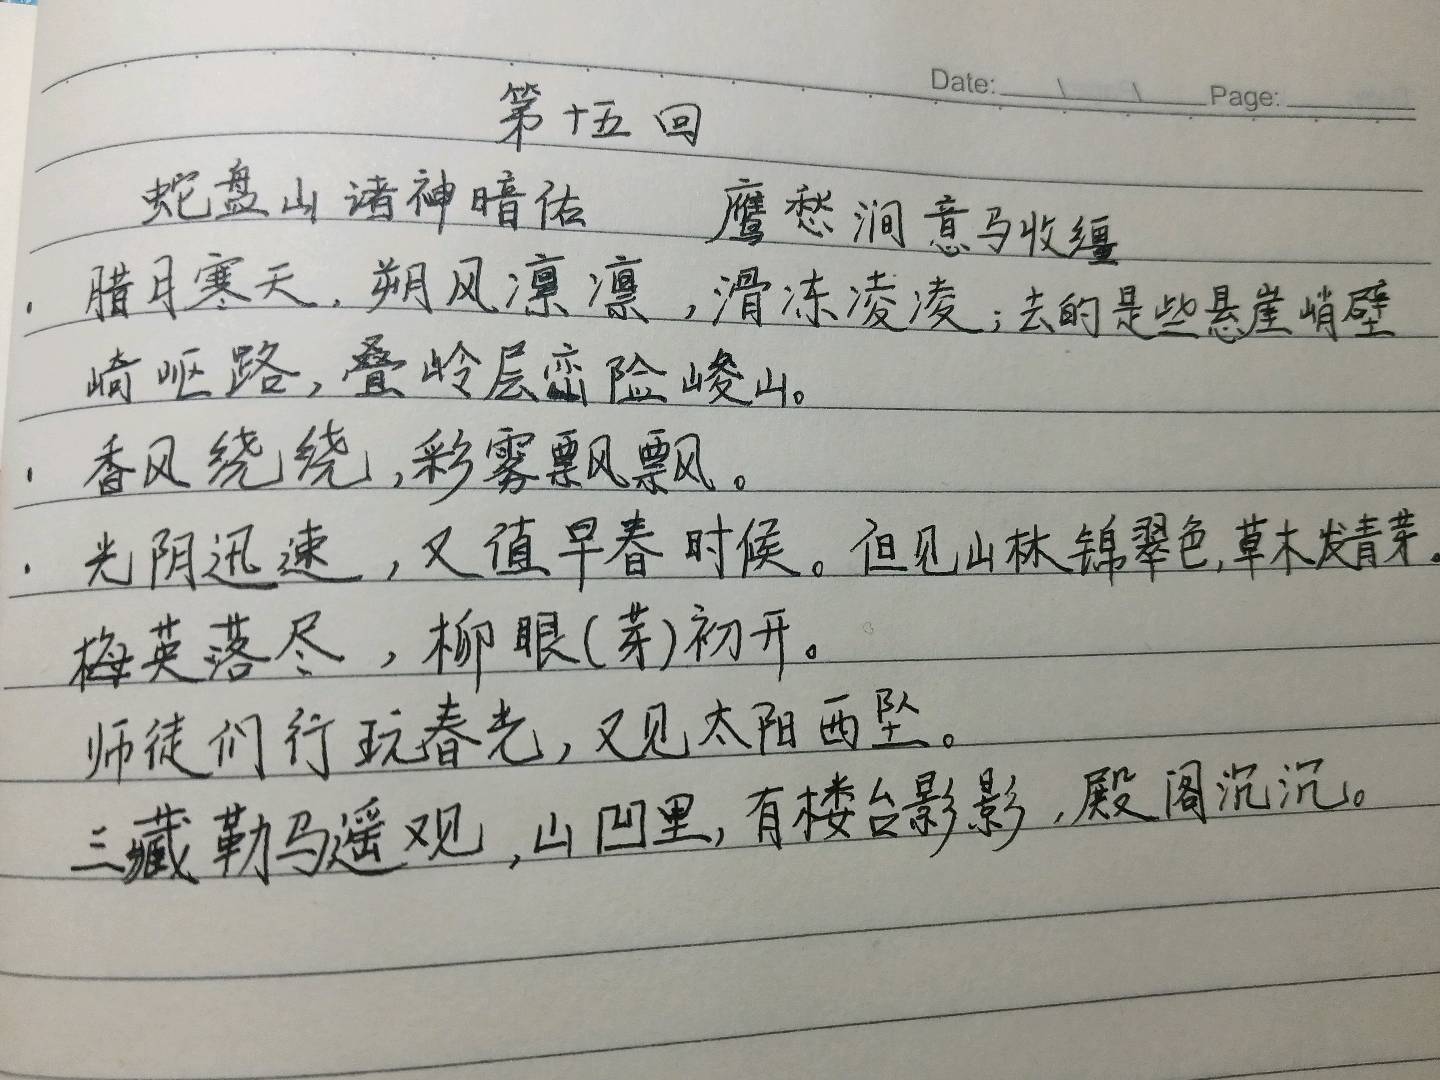 Date: ____\____\____ Page: ________
第十五回
蛇盘山诸神暗佑 鹰愁涧意马收缰
· 腊月寒天,朔风凛凛,滑冻凌凌;去的是些悬崖峭壁
崎岖路,叠岭层峦险峻山。
· 香风绕绕,彩雾飘飘。
· 光阴迅速,又值早春时候。但见山林锦翠色,草木发青芽。
梅英落尽,柳眼(芽)初开。
师徒们行玩春光,又见太阳西坠。
三藏勒马遥观,山凹里,有楼台影影,殿阁沉沉。